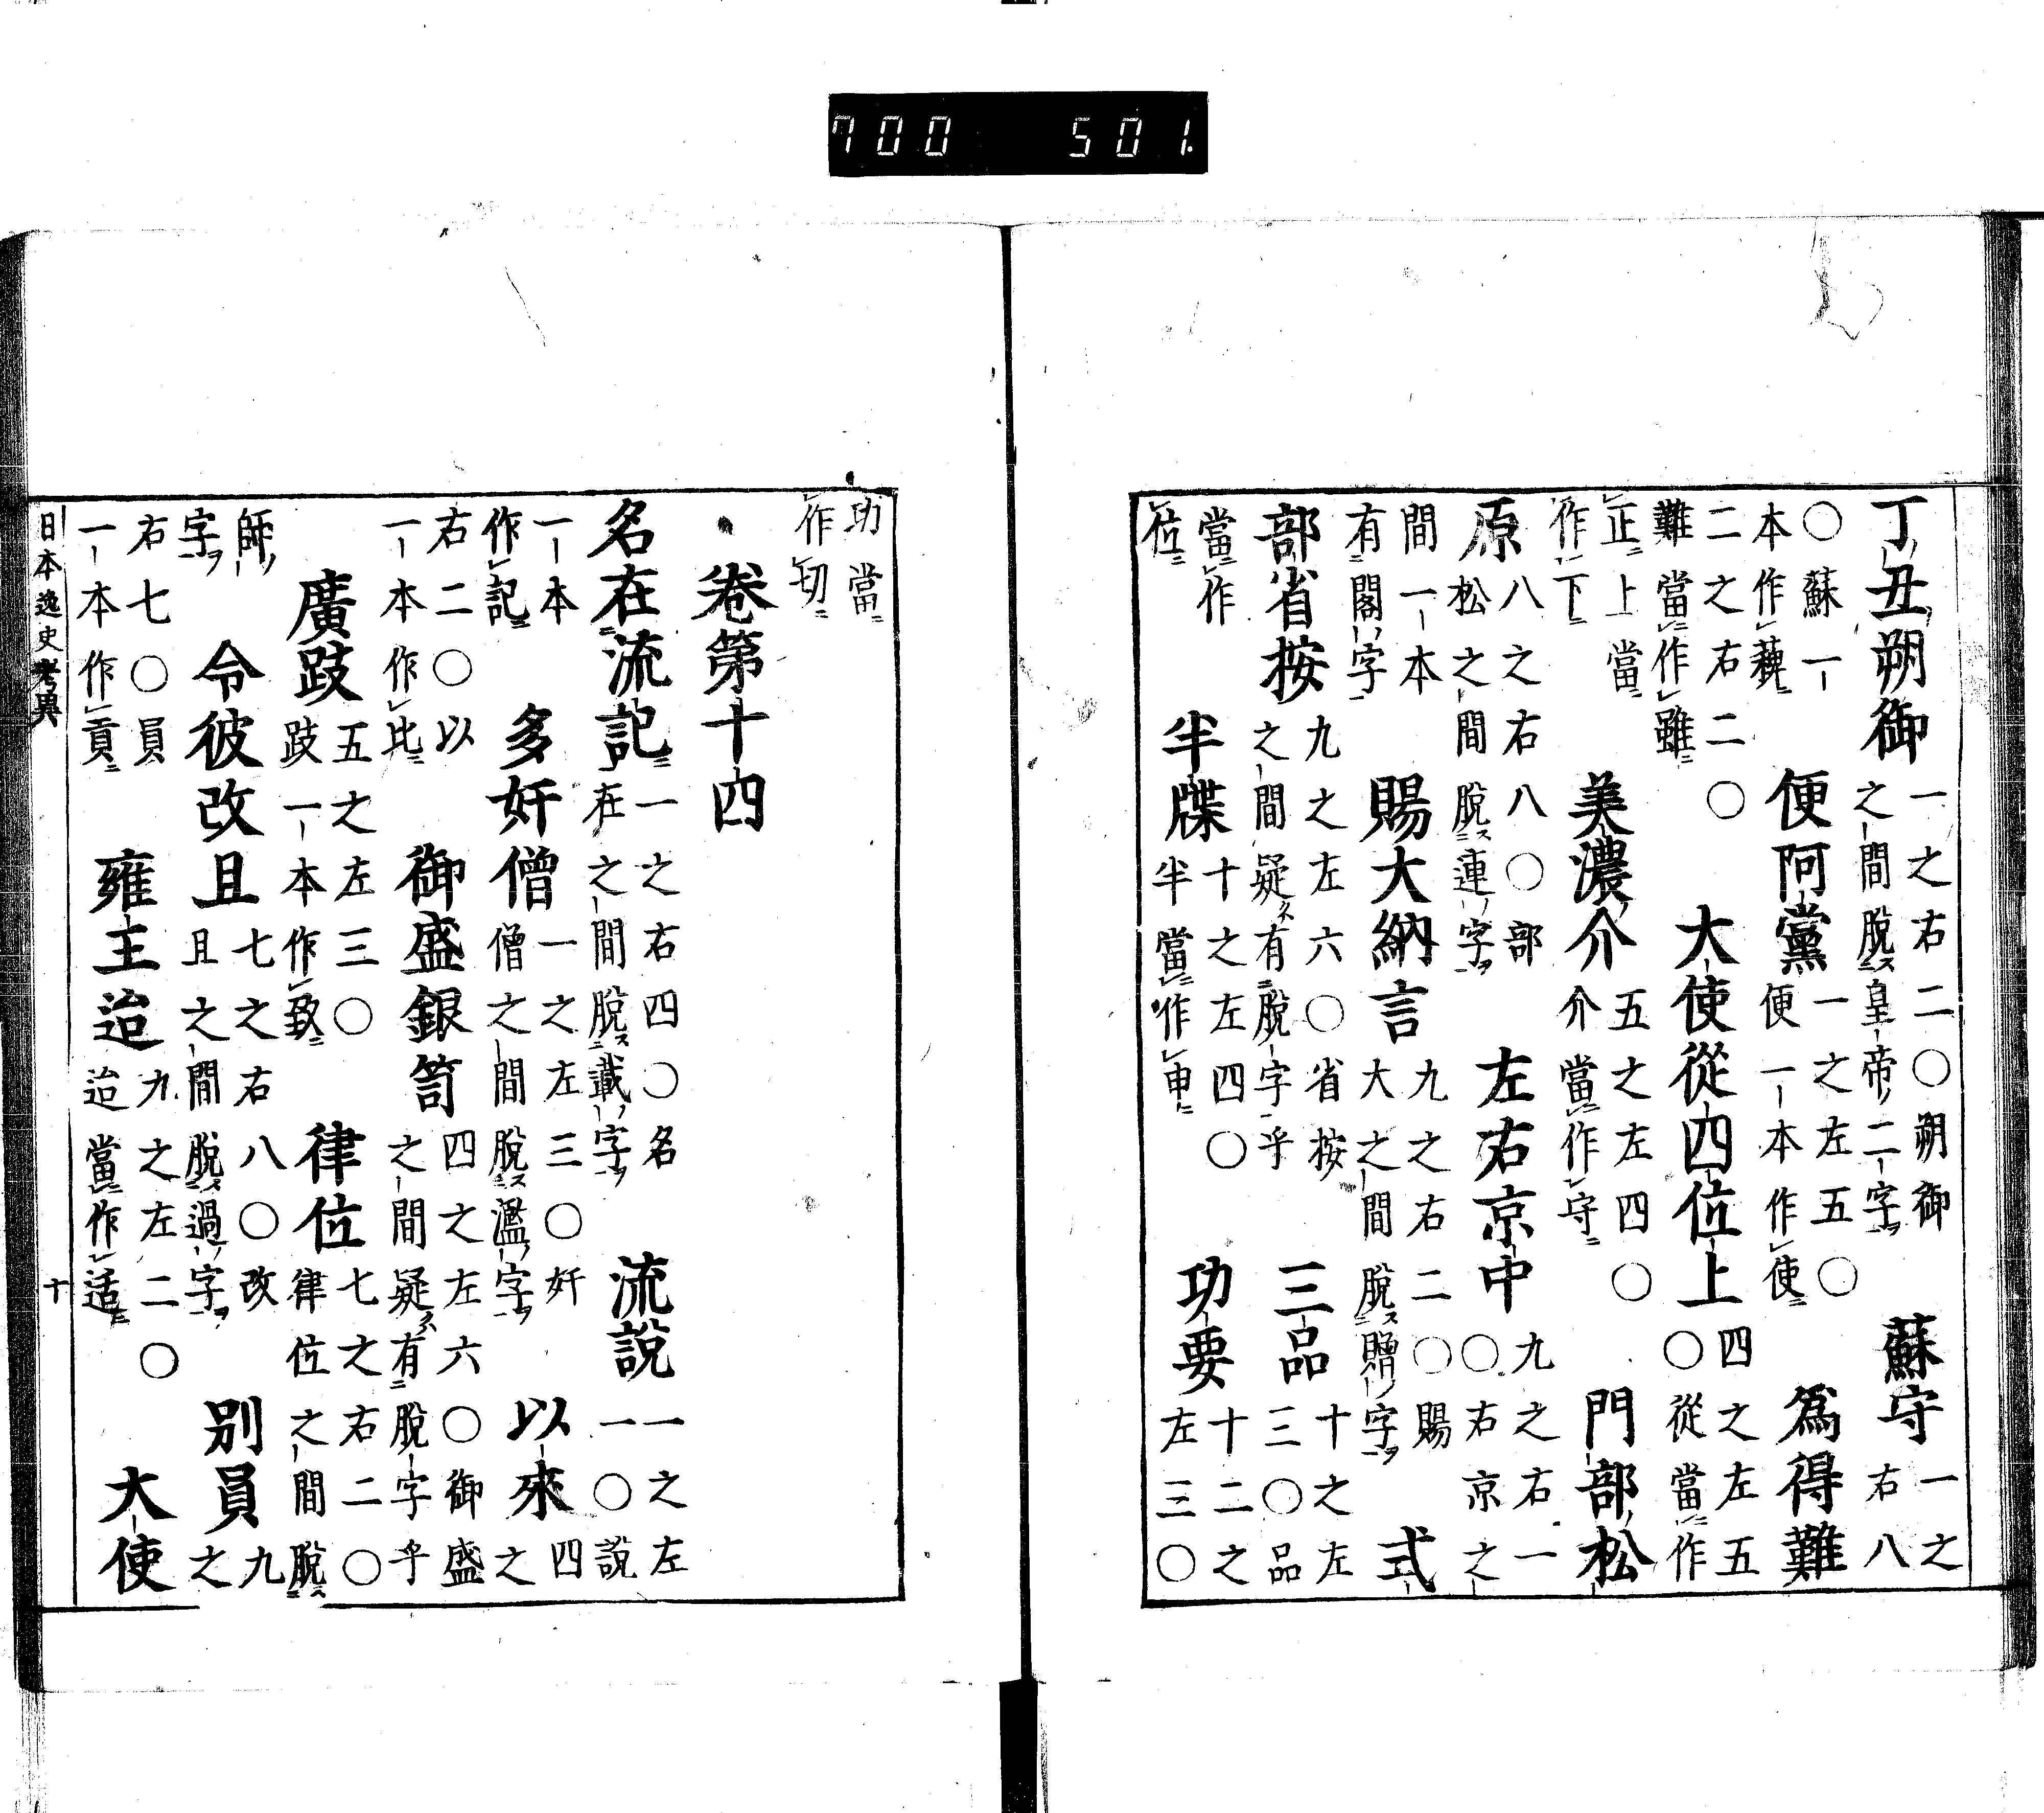 丁丑朔御 一之右二〇朔御之間脫皇帝二字 蘇守 一之右八
〇蘇一本作蘓 便阿黨 一之左五〇便一本作使 爲得難
二之右二〇難當作雖 大使從四位上 四之左五〇從當作
正上當作下 美濃介 五之左四〇介當作守 門部松
原 八之右八〇部松之間脫連字 左右京中 九之右一〇右京之
間一本有閣字 賜大納言 九之右二〇賜大之間脫贈字 式
部省按 九之左六〇省按之間疑有脫字乎 三品 十之左三〇品
當作位 半牒 十之左四〇半當作申 功要 十二之左三〇
功當作切
卷第十四
名在流記 一之右四〇名在之間脫載字 流說 一之左一〇說
一本作記 多奸僧 一之左三〇奸僧之間脫濫字 以來 四之
右二〇以一本作比 御盛銀笥 四之左六〇御盛之間疑有脫字乎
廣跂 五之左三〇跂一本作致 律位 七之右二〇律位之間脫
師字 令彼改且 七之右八〇改且之間脫過字 别員 九之
右七〇員一本作貢 雍王迨 九之左二〇迨當作适 大使
日本逸史考異 十
700 501.